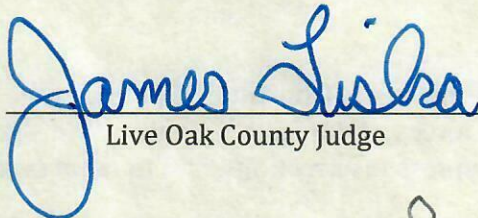 James Liska
Live Oak County Judge